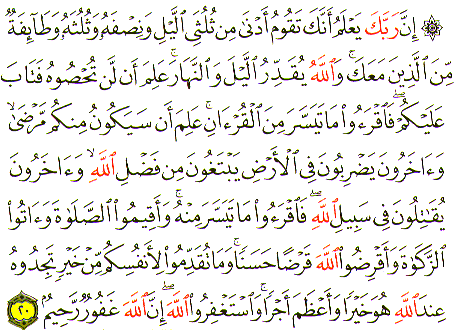 ۞ إِنَّ رَبَّكَ يَعْلَمُ أَنَّكَ تَقُومُ أَدْنَىٰ مِن ثُلُثَىِ ٱلَّيْلِ وَنِصْفَهُۥ وَثُلُثَهُۥ وَطَآئِفَةٌ
مِّنَ ٱلَّذِينَ مَعَكَ ۚ وَٱللَّهُ يُقَدِّرُ ٱلَّيْلَ وَٱلنَّهَارَ ۚ عَلِمَ أَن لَّن تُحْصُوهُ فَتَابَ
عَلَيْكُمْ ۖ فَٱقْرَءُوا۟ مَا تَيَسَّرَ مِنَ ٱلْقُرْءَانِ ۚ عَلِمَ أَن سَيَكُونُ مِنكُم مَّرْضَىٰ ۙ
وَءَاخَرُونَ يَضْرِبُونَ فِى ٱلْأَرْضِ يَبْتَغُونَ مِن فَضْلِ ٱللَّهِ ۙ وَءَاخَرُونَ
يُقَـٰتِلُونَ فِى سَبِيلِ ٱللَّهِ ۖ فَٱقْرَءُوا۟ مَا تَيَسَّرَ مِنْهُ ۚ وَأَقِيمُوا۟ ٱلصَّلَوٰةَ وَءَاتُوا۟
ٱلزَّكَوٰةَ وَأَقْرِضُوا۟ ٱللَّهَ قَرْضًا حَسَنًا ۚ وَمَا تُقَدِّمُوا۟ لِأَنفُسِكُم مِّنْ خَيْرٍ تَجِدُوهُ
عِندَ ٱللَّهِ هُوَ خَيْرًا وَأَعْظَمَ أَجْرًا ۚ وَٱسْتَغْفِرُوا۟ ٱللَّهَ ۖ إِنَّ ٱللَّهَ غَفُورٌ رَّحِيمٌۢ ٢٠